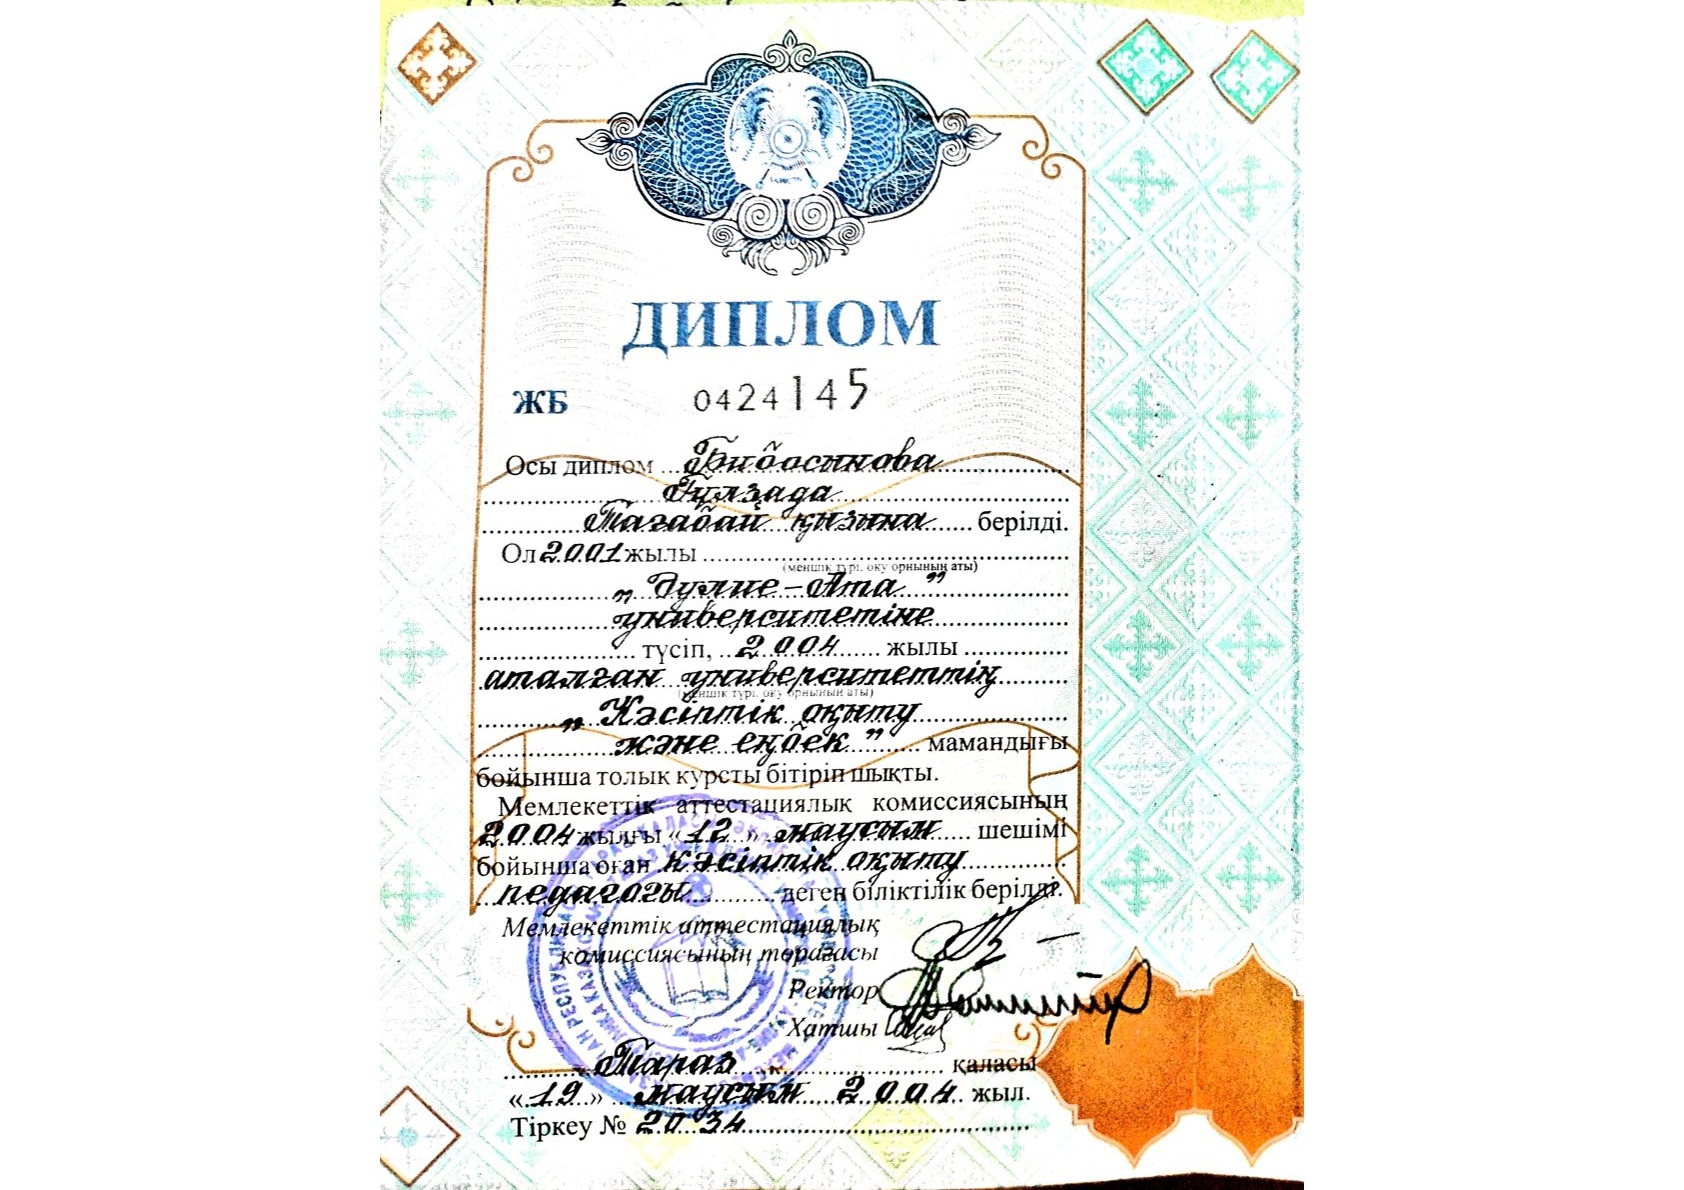 ДИПЛОМ
ЖБ 0424145
Осы диплом Бибосынова
Гүлзада
Тағабай қызына берілді.
Ол 2001 жылы
(меншік түрі, оқу орнының аты)
„Әулие-Ата”
университетіне
түсіп, 2004 жылы
аталған университеттің
(меншік түрі, оқу орнының аты)
„Кәсіптік оқыту
және еңбек” мамандығы
бойынша толық курсты бітіріп шықты.
Мемлекеттік аттестациялық комиссиясының
2004 жылғы «12» маусым шешімі
бойынша оған кәсіптік оқыту
педагогы деген біліктілік берілді.
Мемлекеттік аттестациялық
комиссиясының төрағасы
Ректор
Хатшы
Тараз қаласы
«19» маусым 2004 жыл.
Тіркеу № 2034